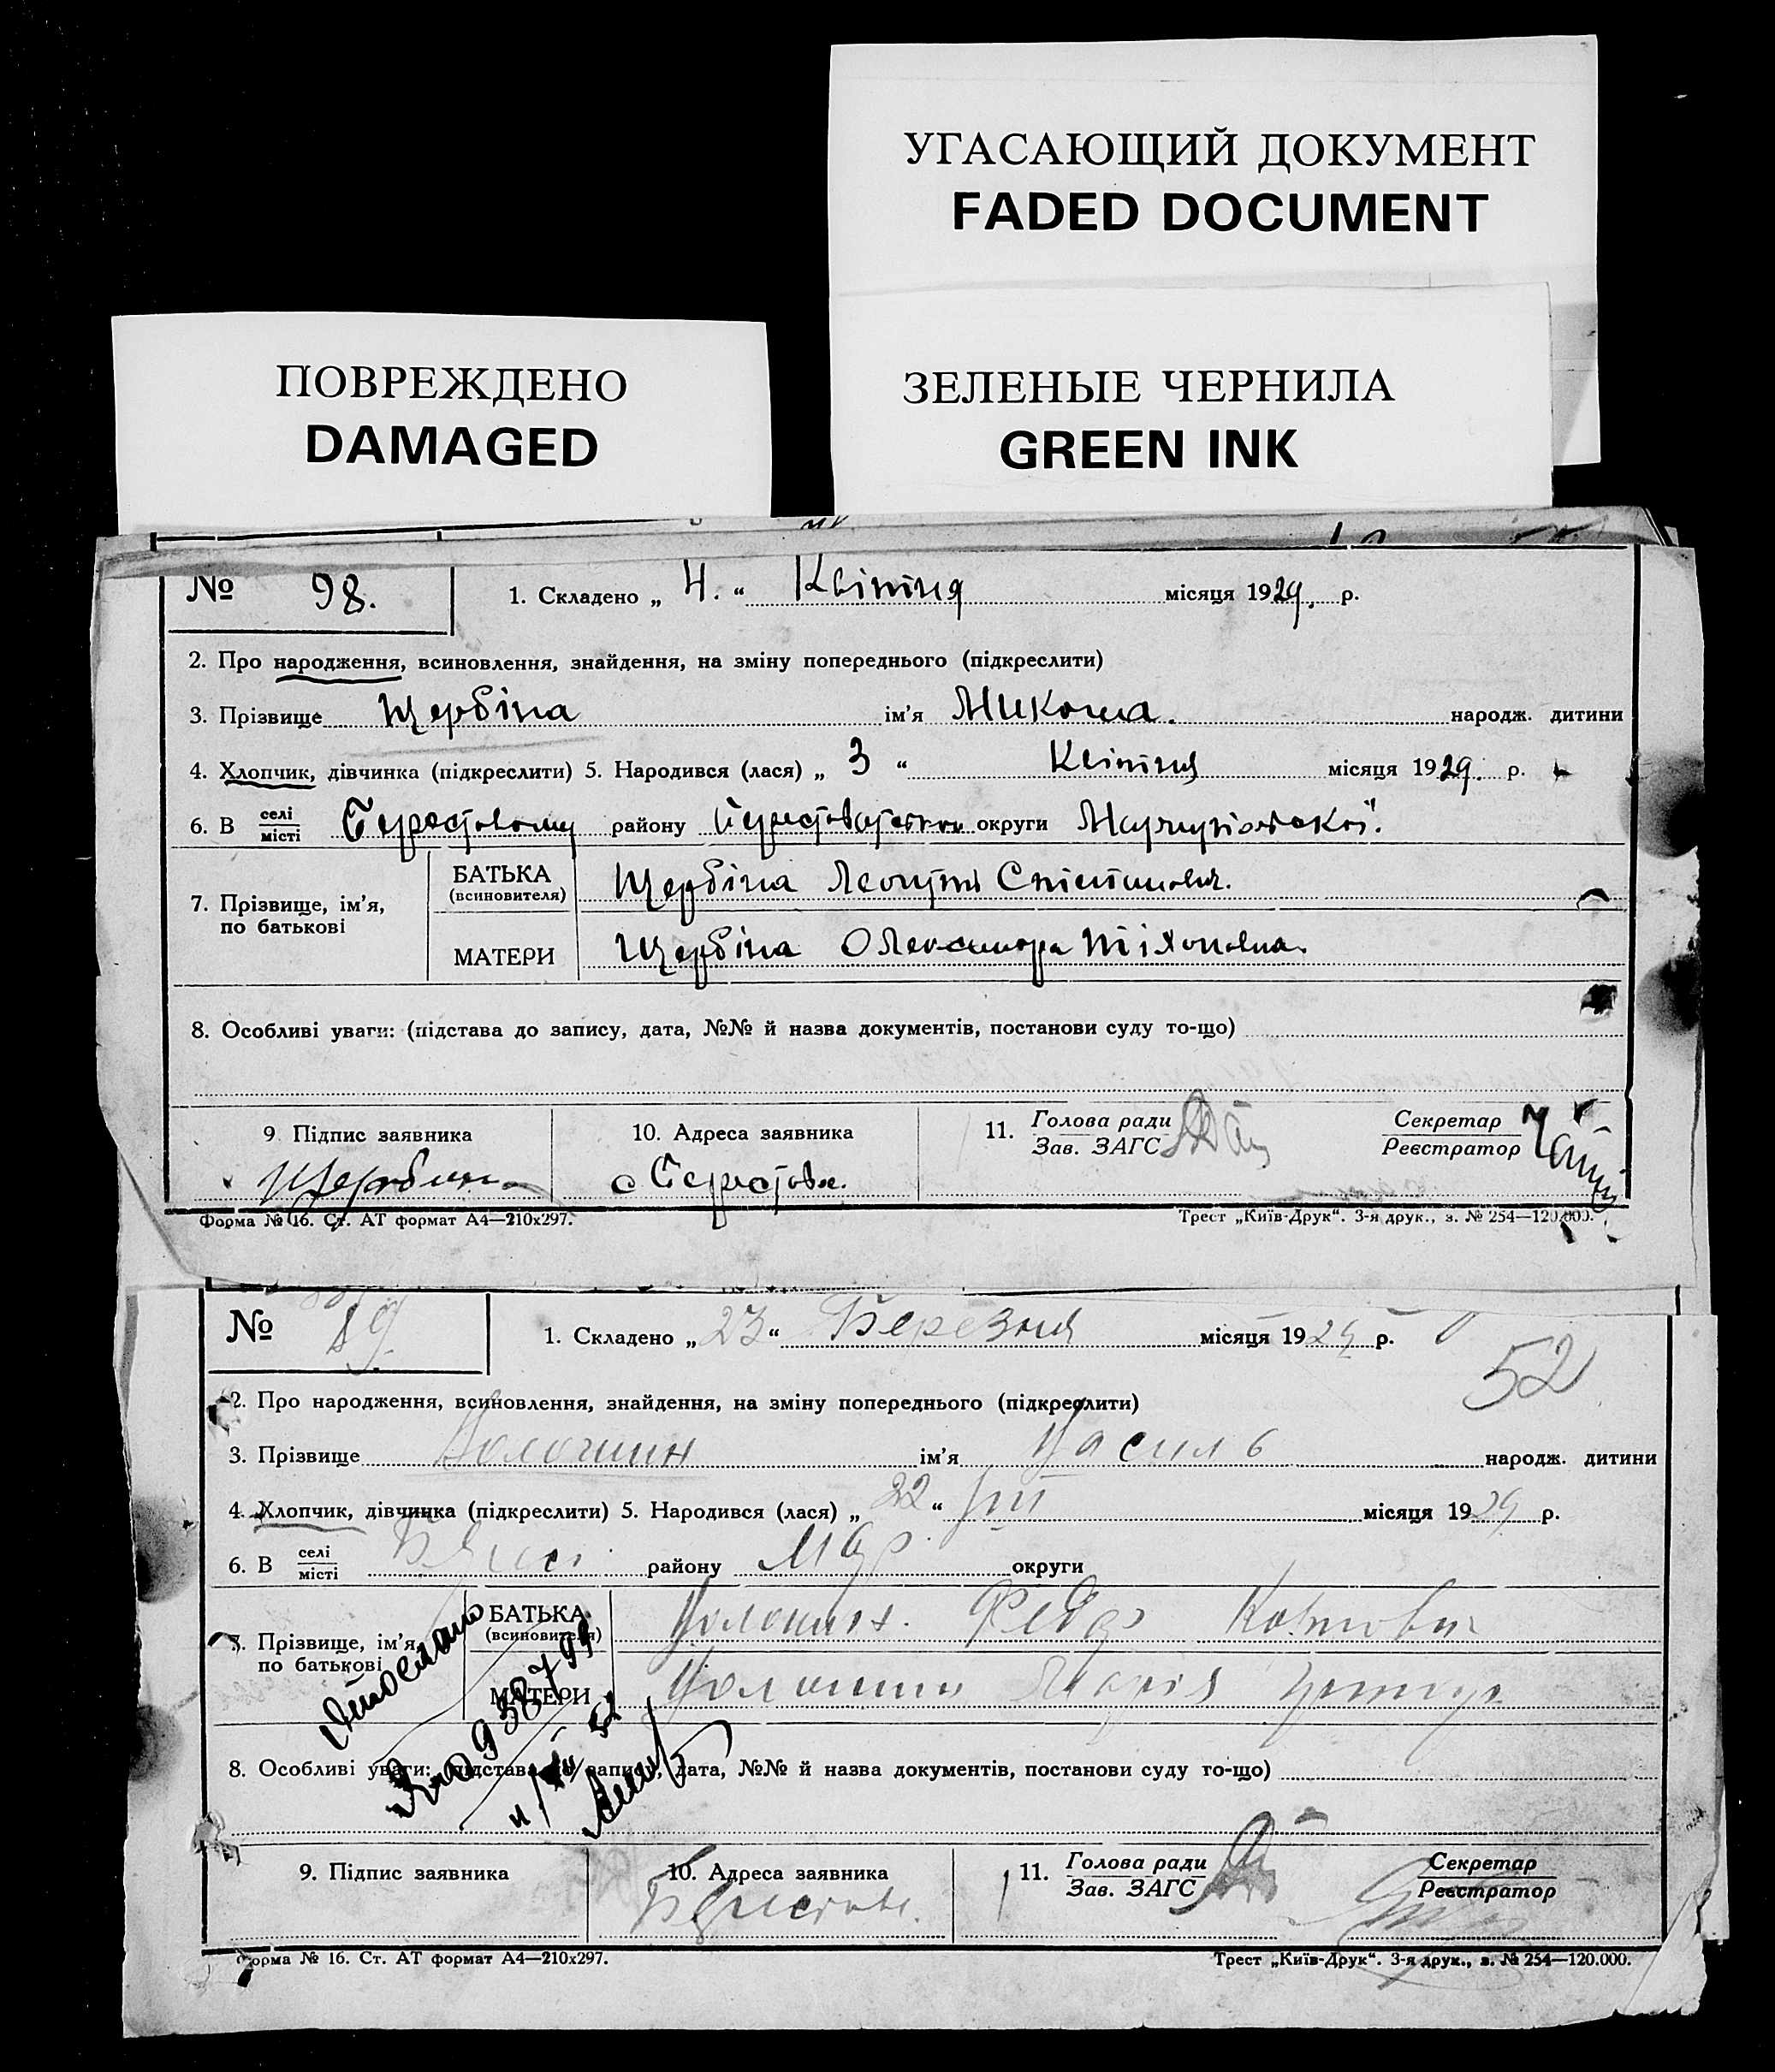 УГАСАЮЩИЙ ДОКУМЕНТ
FADED DOCUMENT
ПОВРЕЖДЕНО
DAMAGED
ЗЕЛЕНЫЕ ЧЕРНИЛА
GREEN INK
№ 98. 1. Складено „ 4. “ Квітня місяця 1929. р.
2. Про народження, всиновлення, знайдення, на зміну попереднього (підкреслити)
3. Прізвище Щербіна ім'я Микола. народж. дитини
4. Хлопчик, дівчинка (підкреслити) 5. Народився (лася) „ 3 “ Квітня місяця 1929. р.
6. В селі місті району округи
7. Прізвище, ім'я, по батькові
БАТЬКА (всиновителя) Щербіна
МАТЕРИ Щербіна Олександра Тіхоновна.
8. Особливі уваги: (підстава до запису, дата, №№ й назва документів, постанови суду то-що)
9. Підпис заявника
10. Адреса заявника
11. Голова ради Зав. ЗАГС
Секретар Реєстратор
Щербина
Форма № 16. Ст. АТ формат А4—210х297.
Трест „Київ-Друк“. 3-я друк., з. № 254—120.000.
№ 89. 1. Складено „ 23 “ Березня місяця 1929 р.
52
2. Про народження, всиновлення, знайдення, на зміну попереднього (підкреслити)
3. Прізвище Волошин ім'я Василь народж. дитини
4. Хлопчик, дівчинка (підкреслити) 5. Народився (лася) „ 22 “ III місяця 1929 р.
6. В селі місті району Мар. округи
7. Прізвище, ім'я, по батькові
БАТЬКА (всиновителя) Волошин Федор
МАТЕРИ Волошин Марія
8. Особливі уваги: (підстава до запису, дата, №№ й назва документів, постанови суду то-що)
9. Підпис заявника
10. Адреса заявника
11. Голова ради Зав. ЗАГС
Секретар Реєстратор
Форма № 16. Ст. АТ формат А4—210х297.
Трест „Київ-Друк“. 3-я друк., з. № 254—120.000.